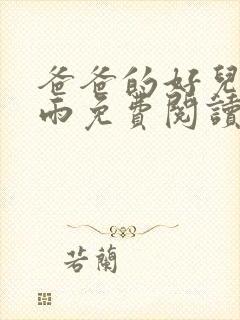 爸爸的好兒
雨免費閱讀
若蘭